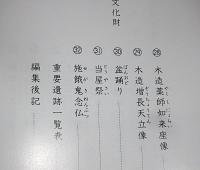 文化財
㉘ 木造薬師如来座像
㉙ 木造増長天立像
㉚ 盆踊り
㉛ 当屋祭
㉜ 施餓鬼念仏
重要遺跡一覧表
編集後記